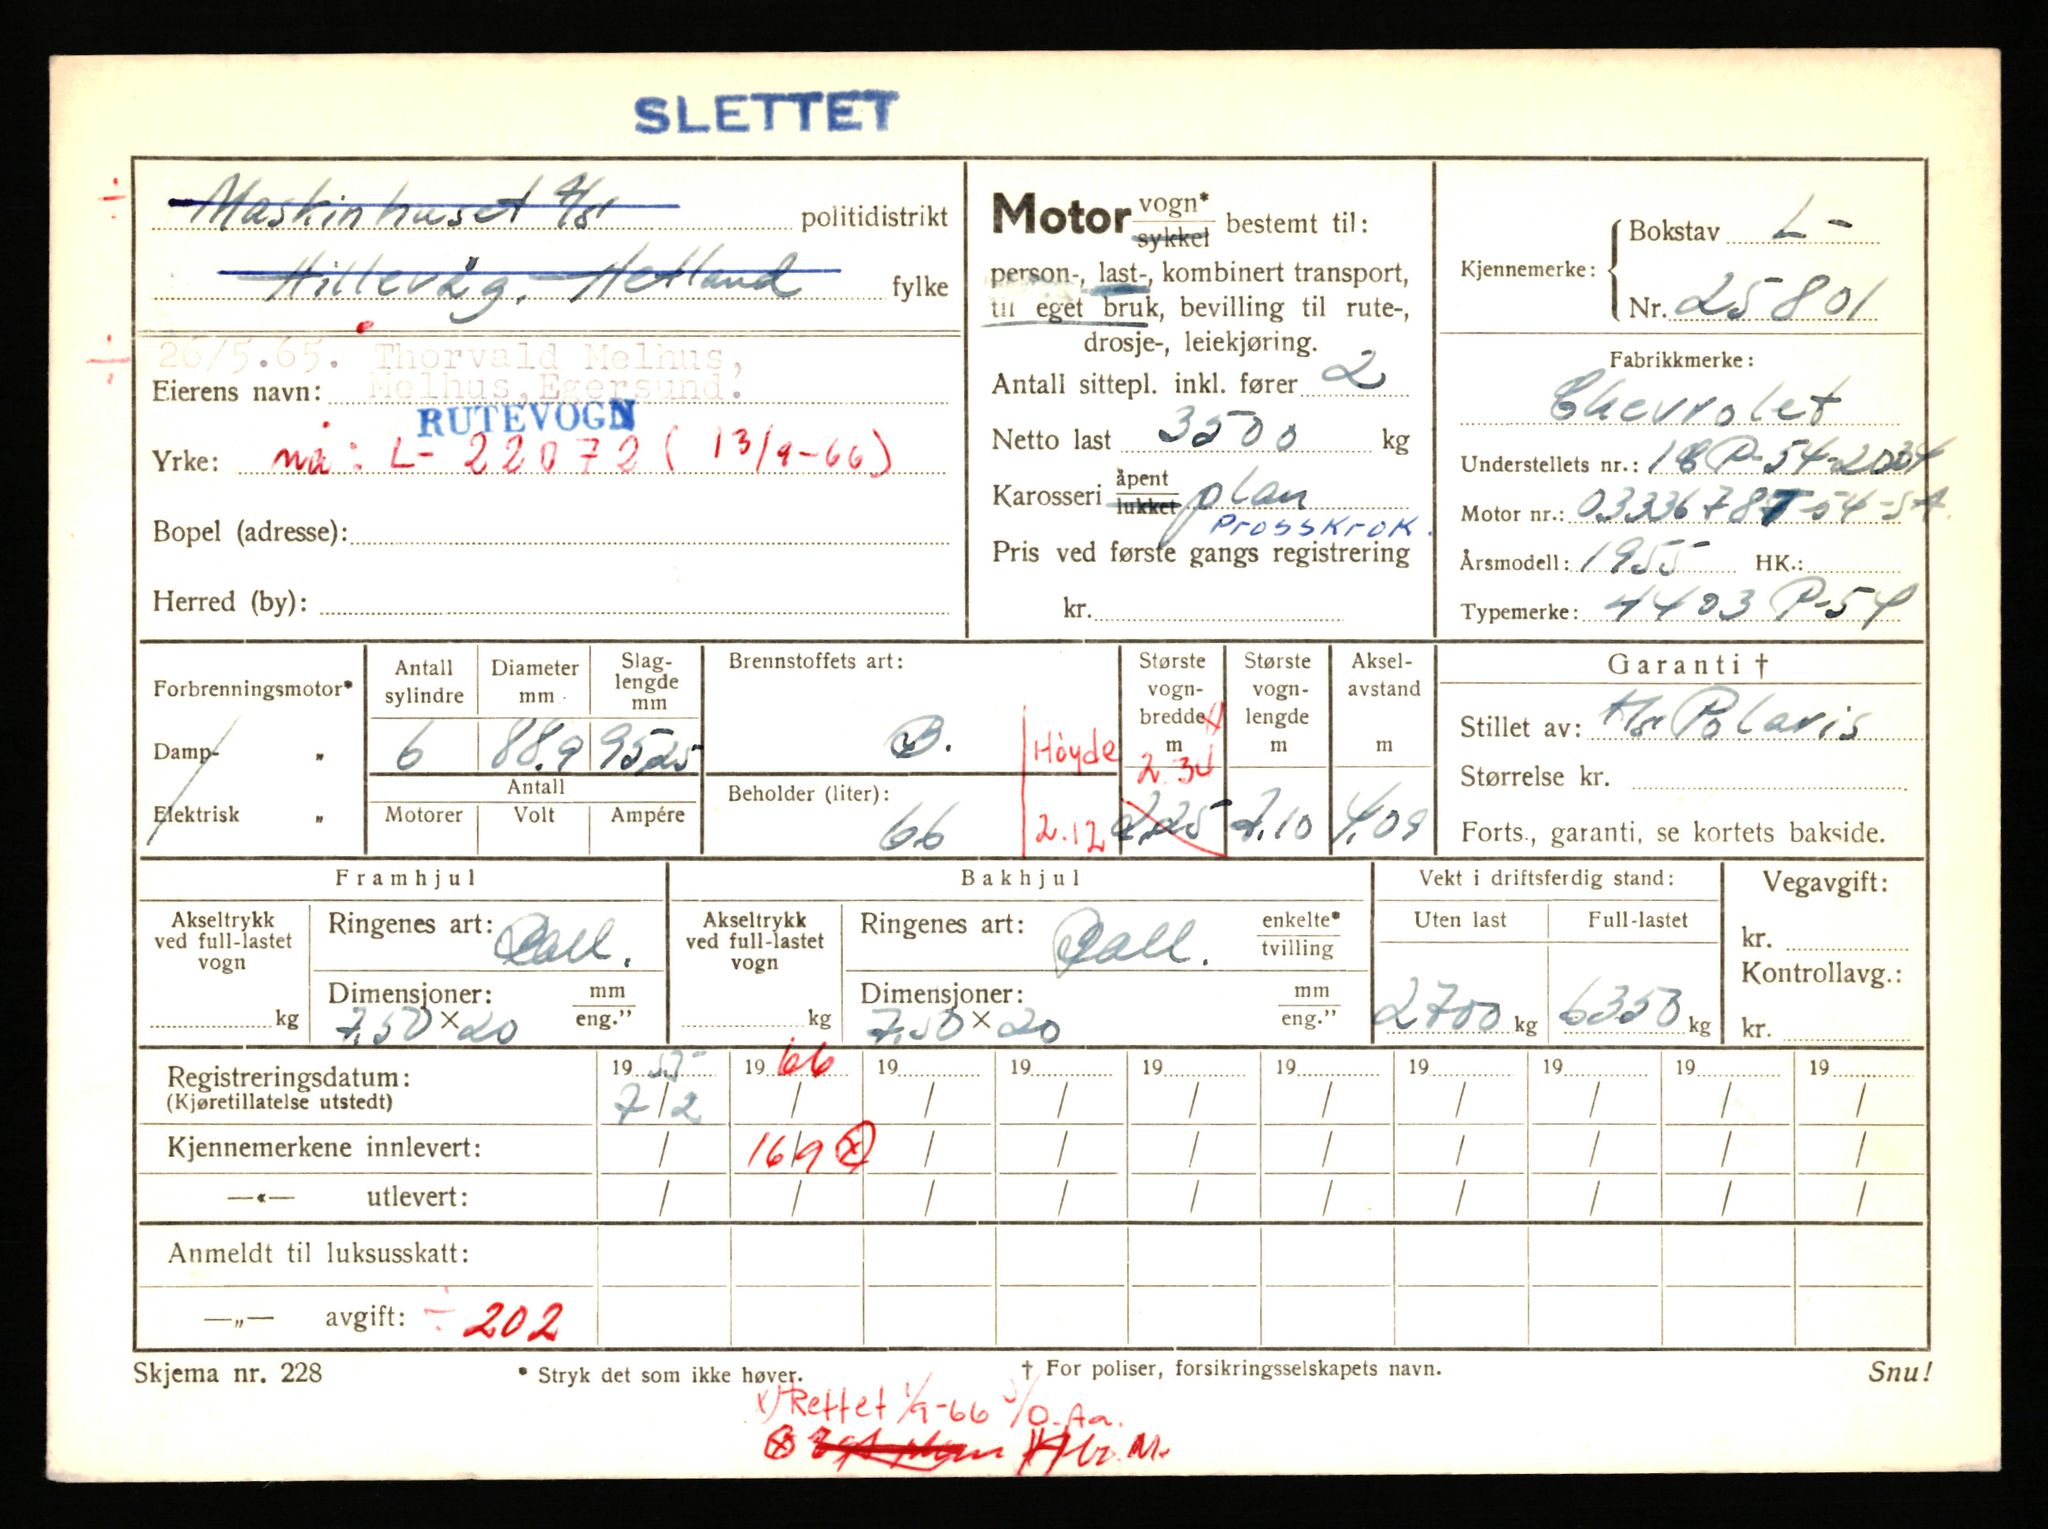 SLETTET
Maskinhuset A/S politidistrikt
Hillevåg, Hetland fylke
26/5.65. Thorvald Melhus,
Eierens navn: Melhus, Egersund.
RUTEVOGN
Yrke: nå: L-22072 (13/9-66)
Bopel (adresse):
Herred (by):
Motor vogn* sykkel bestemt til:
person-, last-, kombinert transport,
til eget bruk, bevilling til rute-,
drosje-, leiekjøring.
Antall sittepl. inkl. fører 2
Netto last 3500 kg
Karosseri åpent lukket plan
Prosskrok.
Pris ved første gangs registrering
kr.
Kjennemerke: Bokstav L-
Nr. 25801
Fabrikkmerke:
Chevrolet
Understellets nr.: 18 P-54-2034
Motor nr.: 0333678T-54-SA
Årsmodell: 1955 HK.:
Typemerke: 4403 P-54
Forbrenningsmotor*
Damp- „
Elektrisk „
Antall sylindre
6
Diameter mm
88.9
Slaglengde mm
95.25
Antall
Motorer Volt Ampére
Brennstoffets art:
B.
Beholder (liter):
66
Høyde
2.12
Største vognbredde m
2.34
2,25
Største vognlengde m
7.10
Akselavstand m
4.09
Garanti †
Stillet av: A/S Polaris
Størrelse kr.
Forts., garanti, se kortets bakside.
Framhjul
Akseltrykk ved full-lastet vogn
kg
Ringenes art: Ball.
Dimensjoner: mm eng."
7.50 × 20
Bakhjul
Akseltrykk ved full-lastet vogn
kg
Ringenes art: Ball. enkelte* tvilling
Dimensjoner: mm eng."
7.50 × 20
Vekt i driftsferdig stand:
Uten last Full-lastet
2700 kg 6350 kg
Vegavgift:
kr.
Kontrollavg.:
kr.
Registreringsdatum: 19 55 19 66 19 19 19 19 19 19 19 19
(Kjøretillatelse utstedt) 7/2 / / / / / / / / /
Kjennemerkene innlevert: / 16/9 x / / / / / / / /
—«— utlevert: / / / / / / / / / /
Anmeldt til luksusskatt:
—„— avgift: ÷ 202
Skjema nr. 228 * Stryk det som ikke høver. † For poliser, forsikringsselskapets navn. Snu!
x) Rettet 1/9-66 O.Aa.